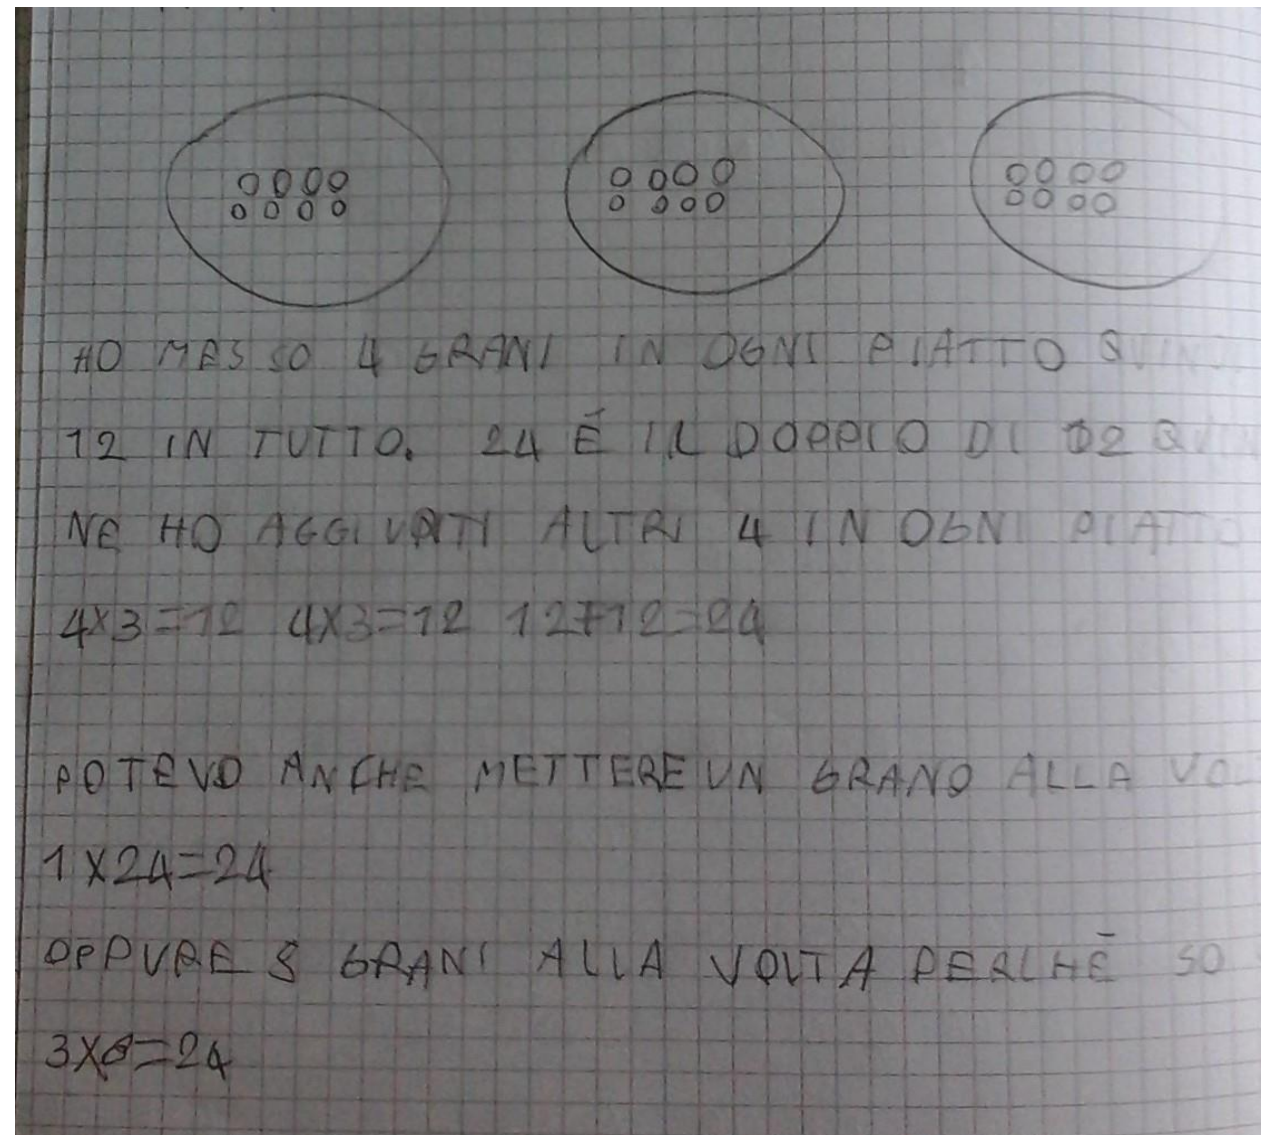 HO MESSO 4 GRANI IN OGNI PIATTO QUIN
12 IN TUTTO. 24 É IL DOPPIO DI 12 QUI
NE HO AGGIUNTI ALTRI 4 IN OGNI PIATTO
4X3=12 4X3=12 12+12=24
POTEVO ANCHE METTERE UN GRANO ALLA VOL
1X24=24
OPPURE 8 GRANI ALLA VOLTA PERCHÉ SO
3X8=24